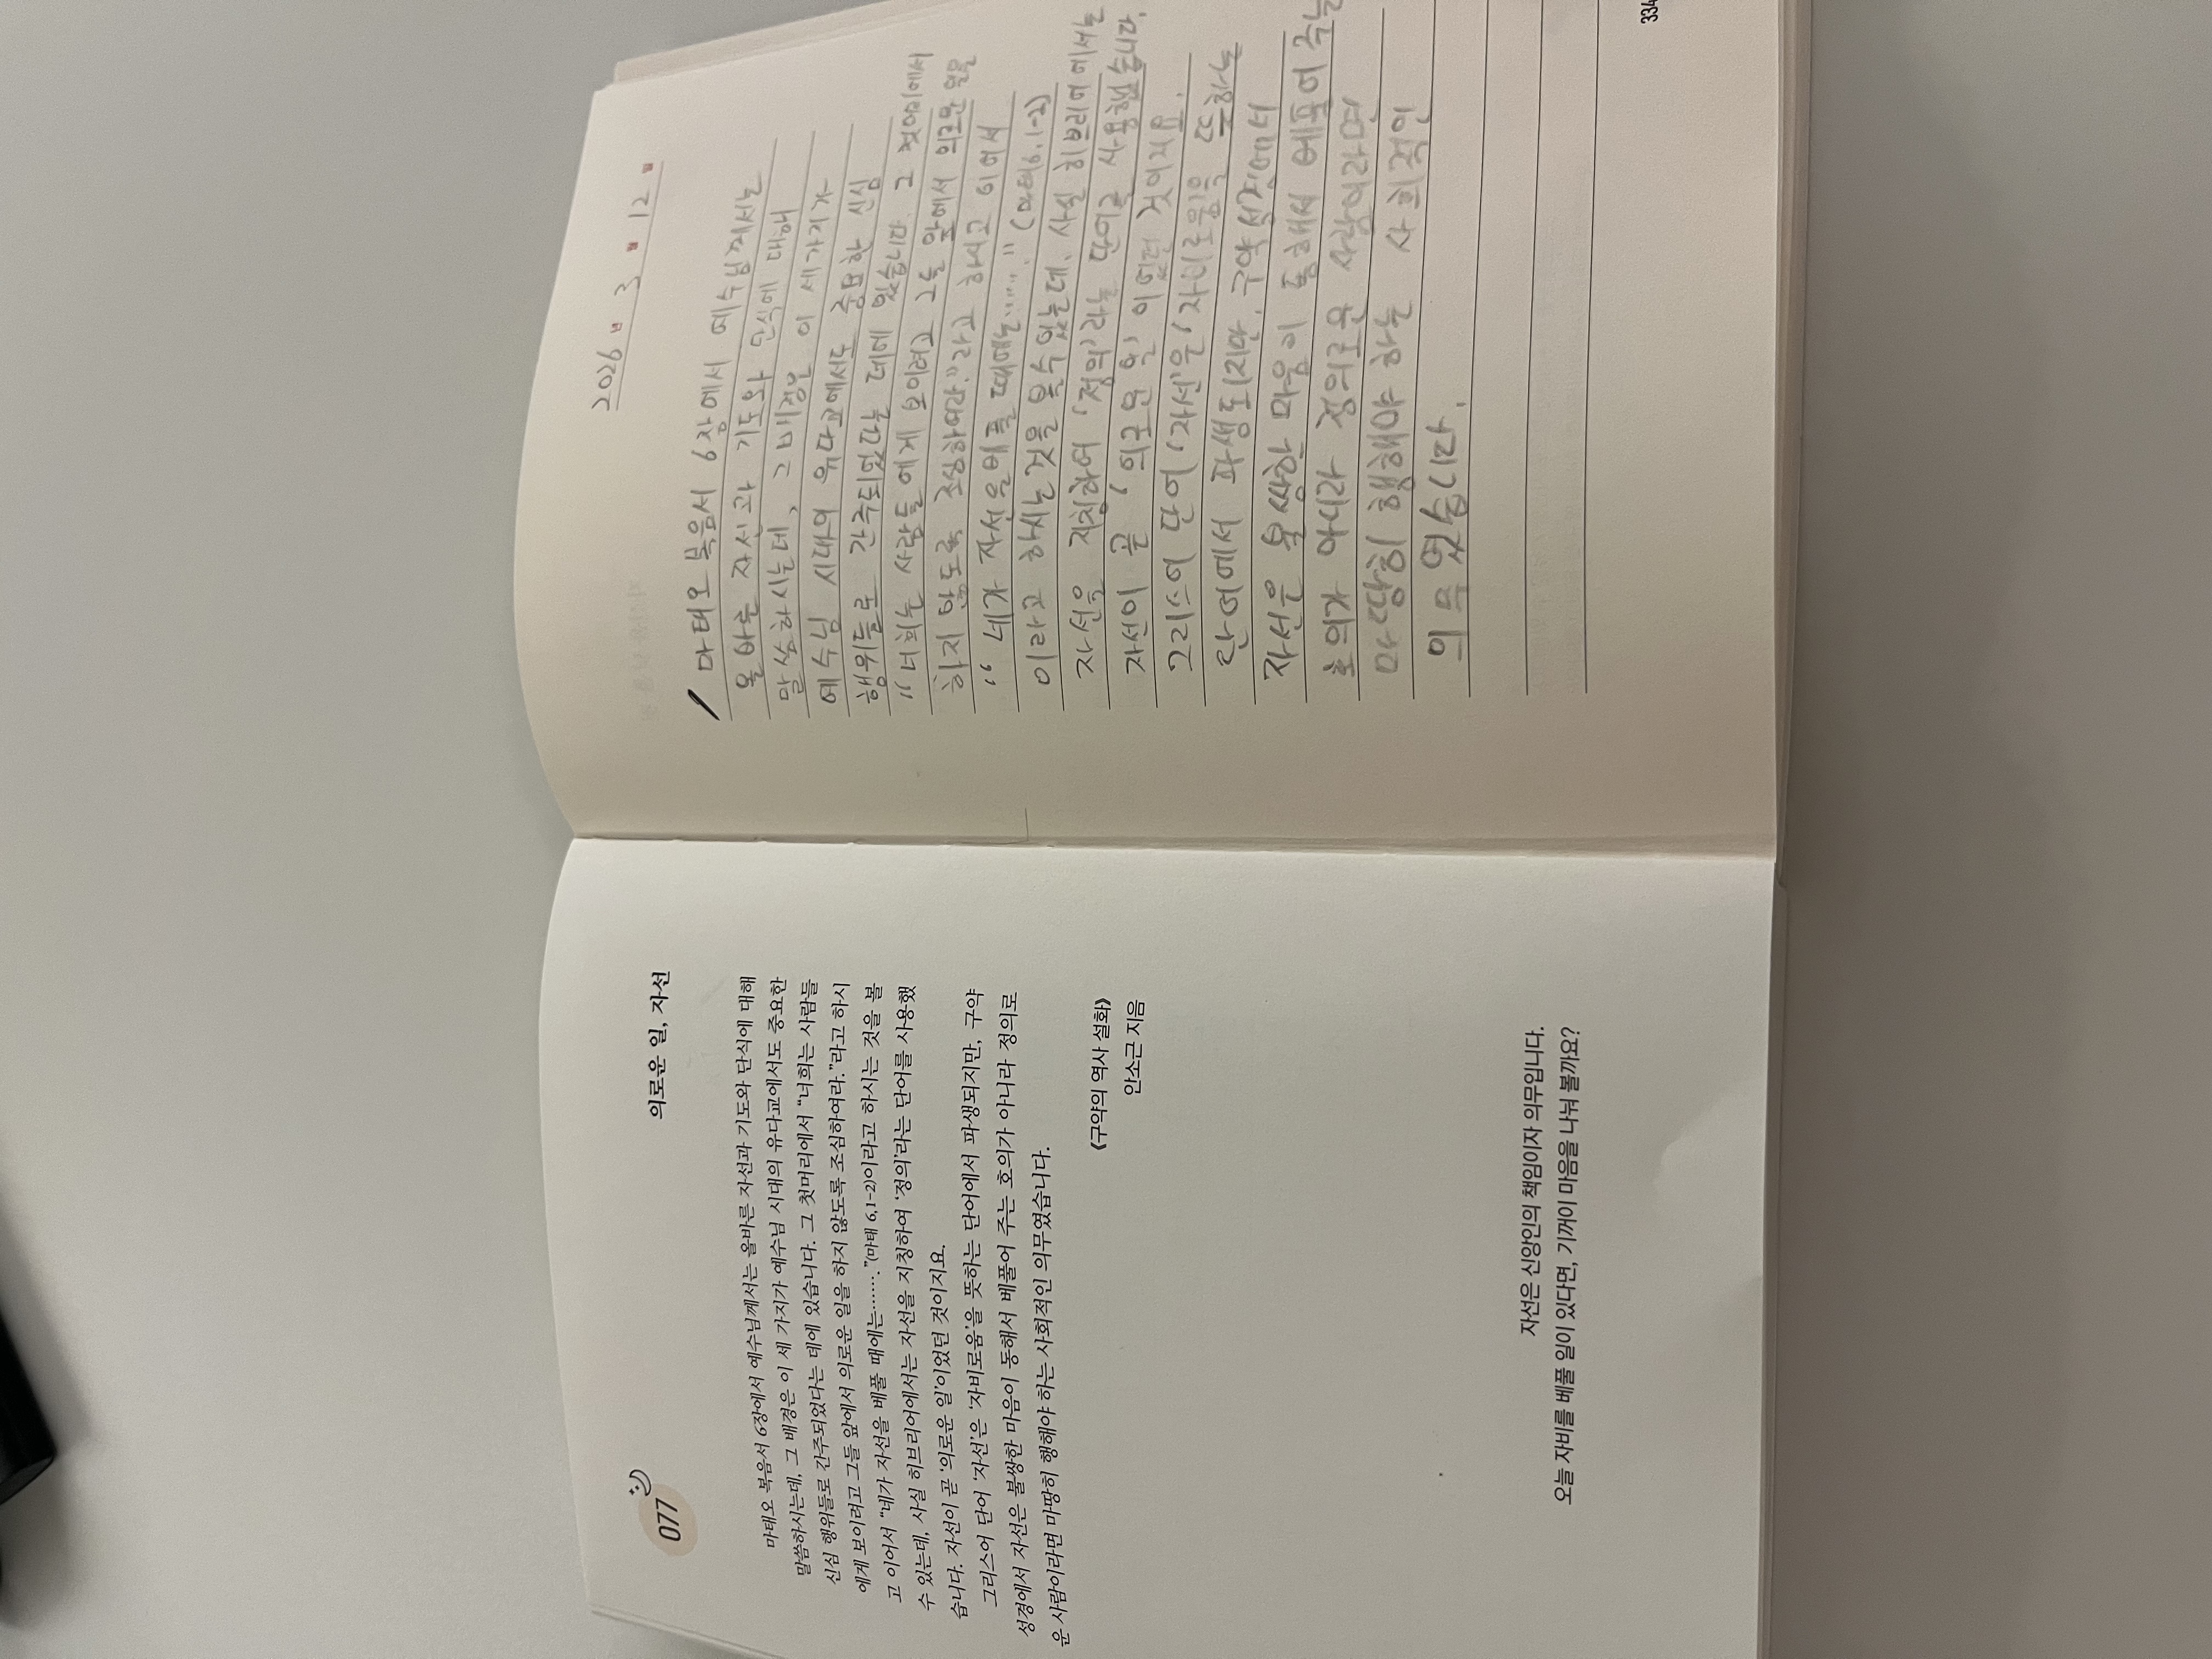 077
의로운 일, 자선
마태오 복음서 6장에서 예수님께서는 올바른 자선과 기도와 단식에 대해
말씀하시는데, 그 배경은 이 세 가지가 예수님 시대의 유다교에서도 중요한
신심 행위들로 간주되었다는 데에 있습니다. 그 첫머리에서 “너희는 사람들
에게 보이려고 그들 앞에서 의로운 일을 하지 않도록 조심하여라.”라고 하시
고 이어서 “네가 자선을 베풀 때에는…….”(마태 6,1-2)이라고 하시는 것을 볼
수 있는데, 사실 히브리어에서는 자선을 지칭하여 ‘정의’라는 단어를 사용했
습니다. 자선이 곧 ‘의로운 일’이었던 것이지요.
그리스어 단어 ‘자선’은 ‘자비로움’을 뜻하는 단어에서 파생되지만, 구약
성경에서 자선은 불쌍한 마음이 동해서 베풀어 주는 호의가 아니라 정의로
운 사람이라면 마땅히 행해야 하는 사회적인 의무였습니다.
《구약의 역사 설화》
안소근 지음
자선은 신앙인의 책임이자 의무입니다.
오늘 자비를 베풀 일이 있다면, 기꺼이 마음을 나눠 볼까요?
2026 년 3 월 12 일
마태오 복음서 6장에서 예수님께서는
올바른 자선과 기도와 단식에 대해
말씀하시는데, 그 배경은 이 세가지가
예수님 시대의 유다교에서도 중요한 신심
행위들로 간주되었다는 데에 있습니다. 그 첫머리에서
“너희는 사람들에게 보이려고 그들 앞에서 의로운 일을
하지 않도록 조심하여라.”라고 하시고 이어서
“네가 자선을 베풀 때에는……” (마태6.1-2)
이라고 하시는 것을 볼수 있는데, 사실 히브리어에서는
자선을 지칭하여 ‘정의’라는 단어를 사용했습니다.
자선이 곧 ‘의로운 일’이었던 것이지요.
그리스어 단어 ‘자선’은 ‘자비로움’을 뜻하는
단어에서 파생되지만, 구약성경에서
자선은 불쌍한 마음이 동해서 베풀어 주는
호의가 아니라 정의로운 사람이라면
마땅히 행해야 하는 사회적인
의무였습니다.
334